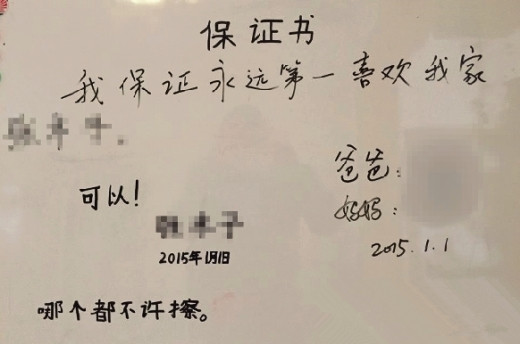 保证书
我保证永远第一喜欢我家
爸爸：
可以！
妈妈：
2015年1月1日
2015.1.1
哪个都不许擦。